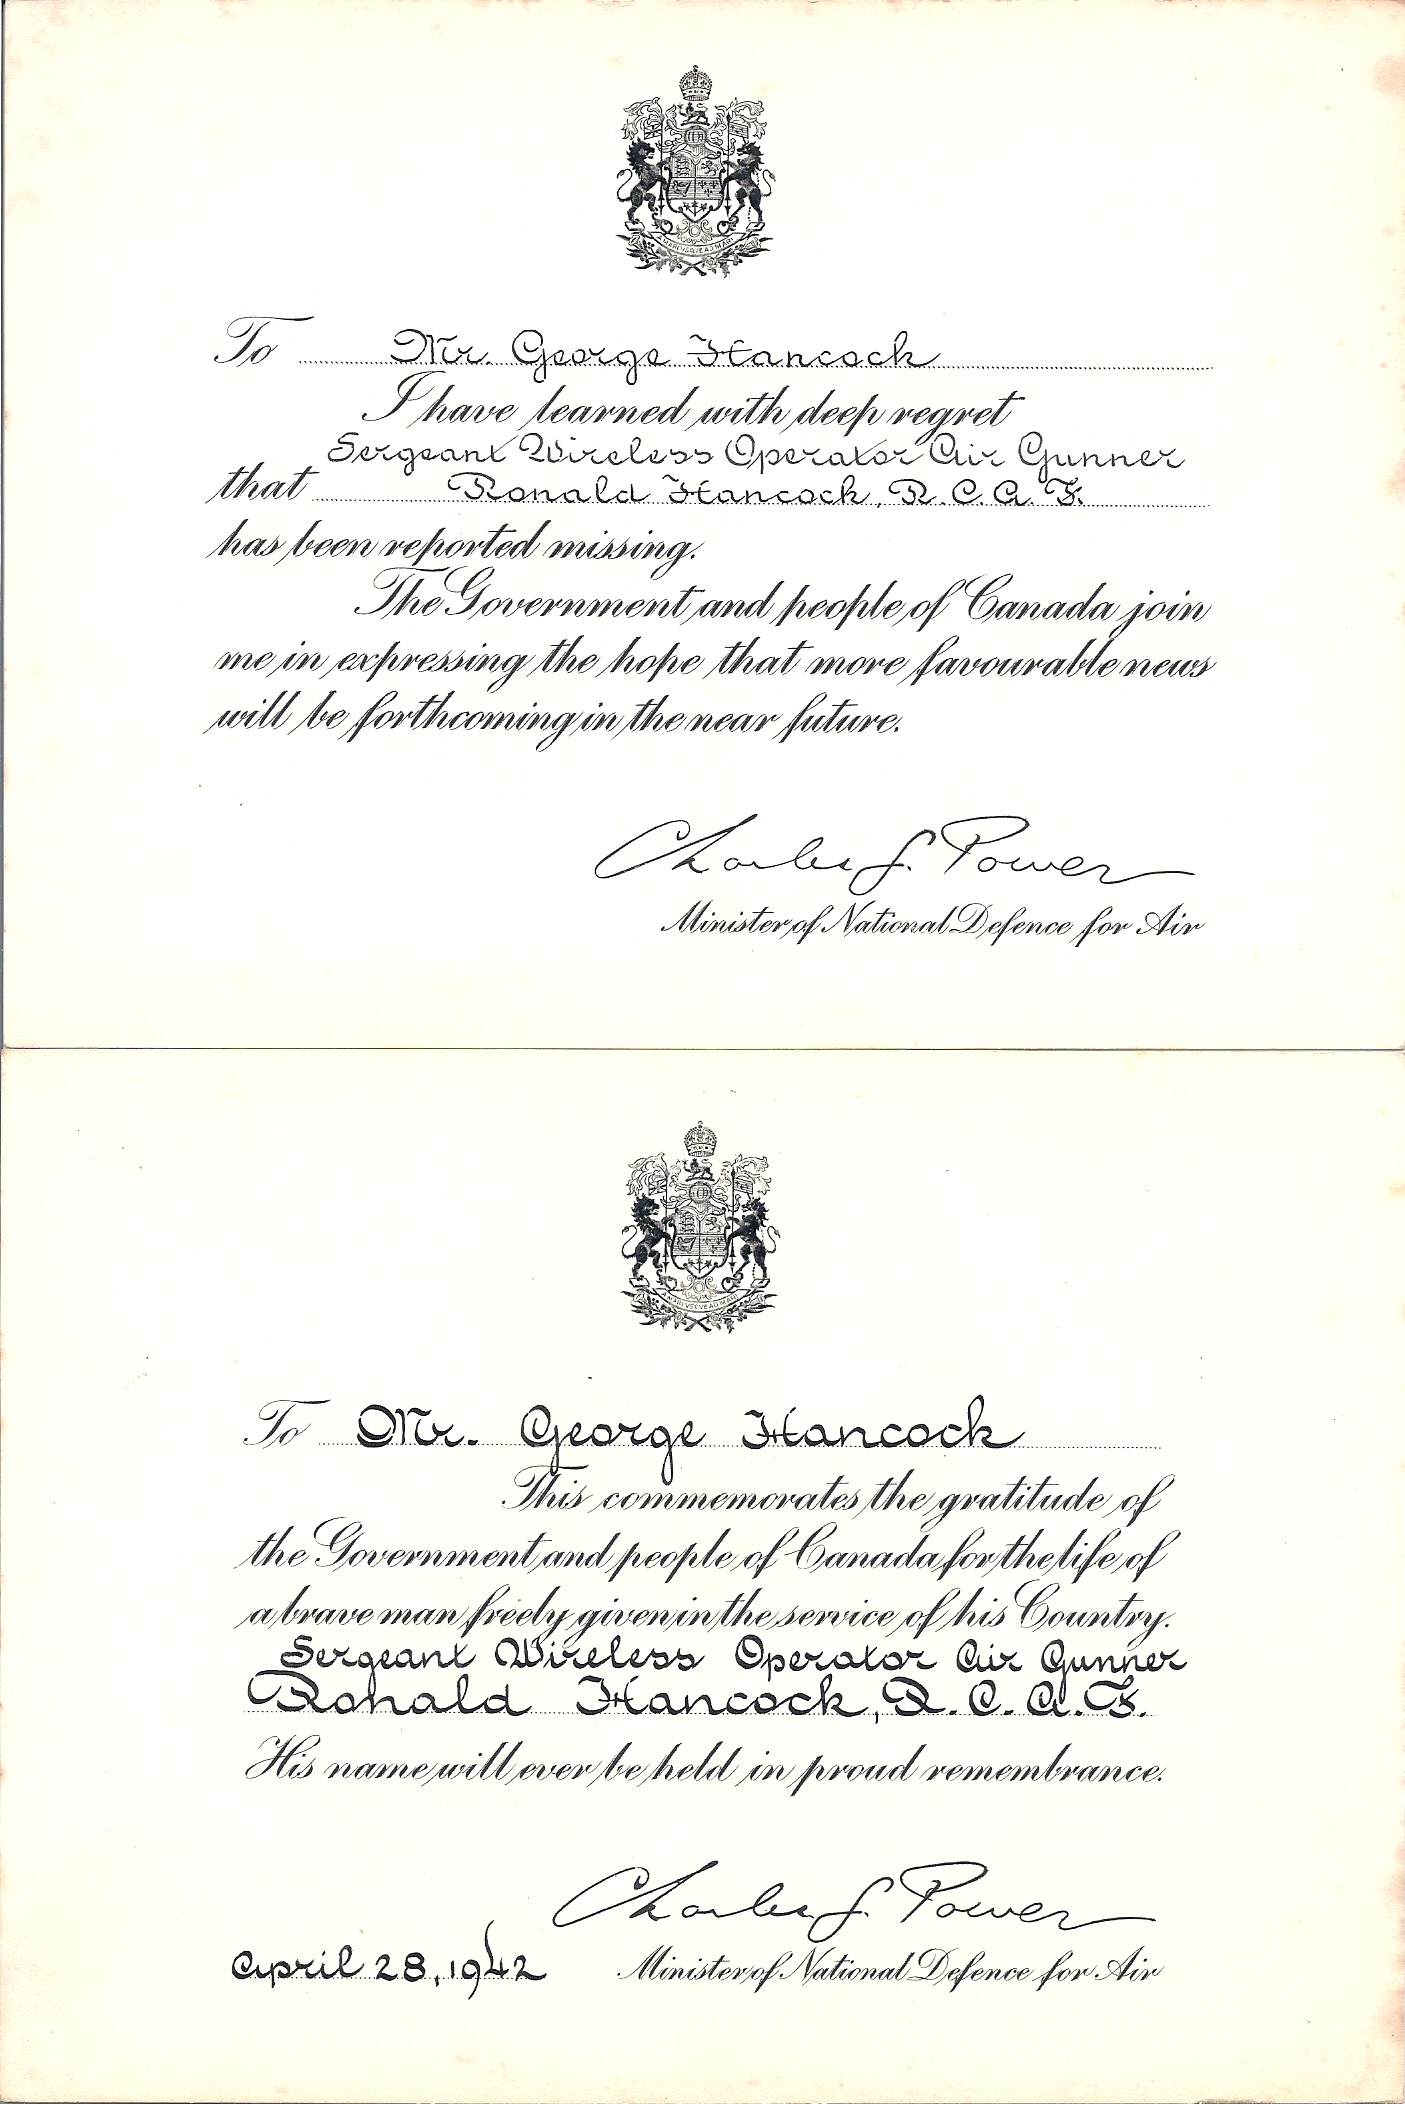 A MARI USQUE AD MARE
To Mr. George Hancock
I have learned with deep regret
Sergeant Wireless Operator Air Gunner
that Ronald Hancock, R.C.A.F.
has been reported missing.
The Government and people of Canada join
me in expressing the hope that more favourable news
will be forthcoming in the near future.
Charles G. Power
Minister of National Defence for Air
A MARI USQUE AD MARE
To Mr. George Hancock
This commemorates the gratitude of
the Government and people of Canada for the life of
a brave man freely given in the service of his Country.
Sergeant Wireless Operator Air Gunner
Ronald Hancock, R.C.A.F.
His name will ever be held in proud remembrance.
Charles G. Power
April 28, 1942 Minister of National Defence for Air